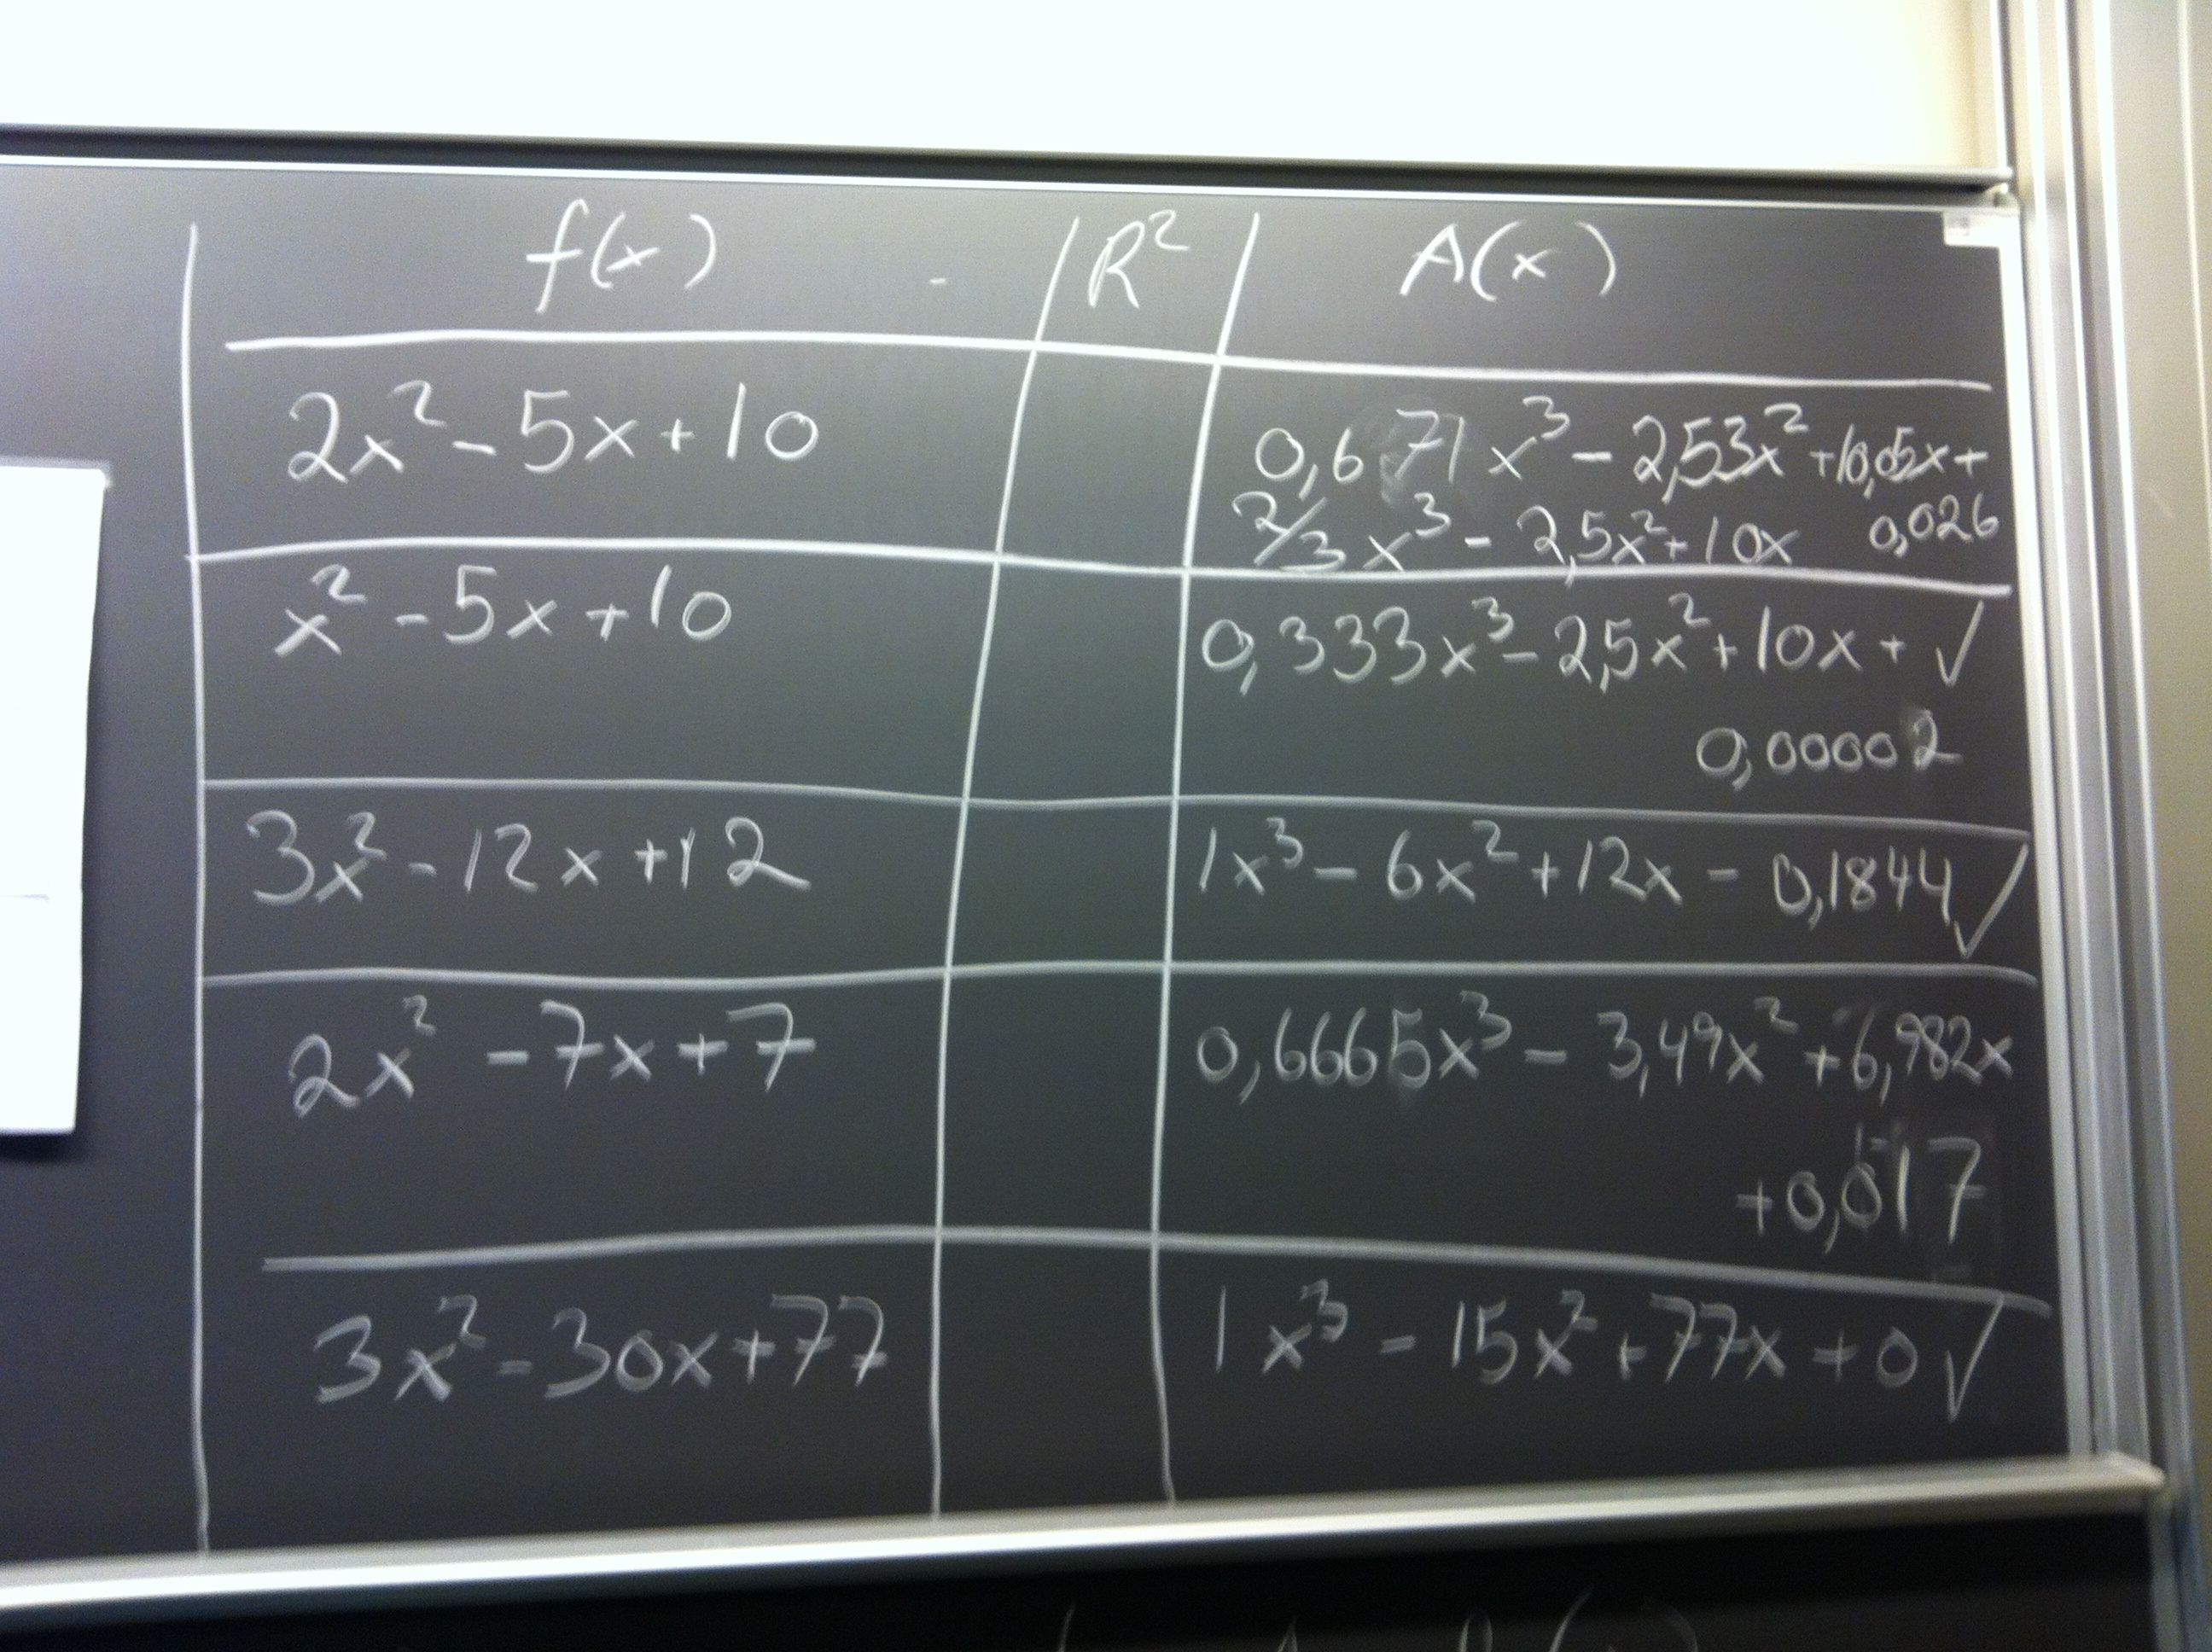 f(x) R² A(x)
2x² - 5x + 10 0,671x³ - 2,53x² + 10,05x +
0,026
2/3 x³ - 2,5x² + 10x
x² - 5x + 10 0,333x³ - 2,5x² + 10x + ✓
0,00002
3x² - 12x + 12 1x³ - 6x² + 12x - 0,1844 ✓
2x² - 7x + 7 0,6665x³ - 3,49x² + 6,982x
+0,017
3x² - 30x + 77 1x³ - 15x² + 77x + 0 ✓